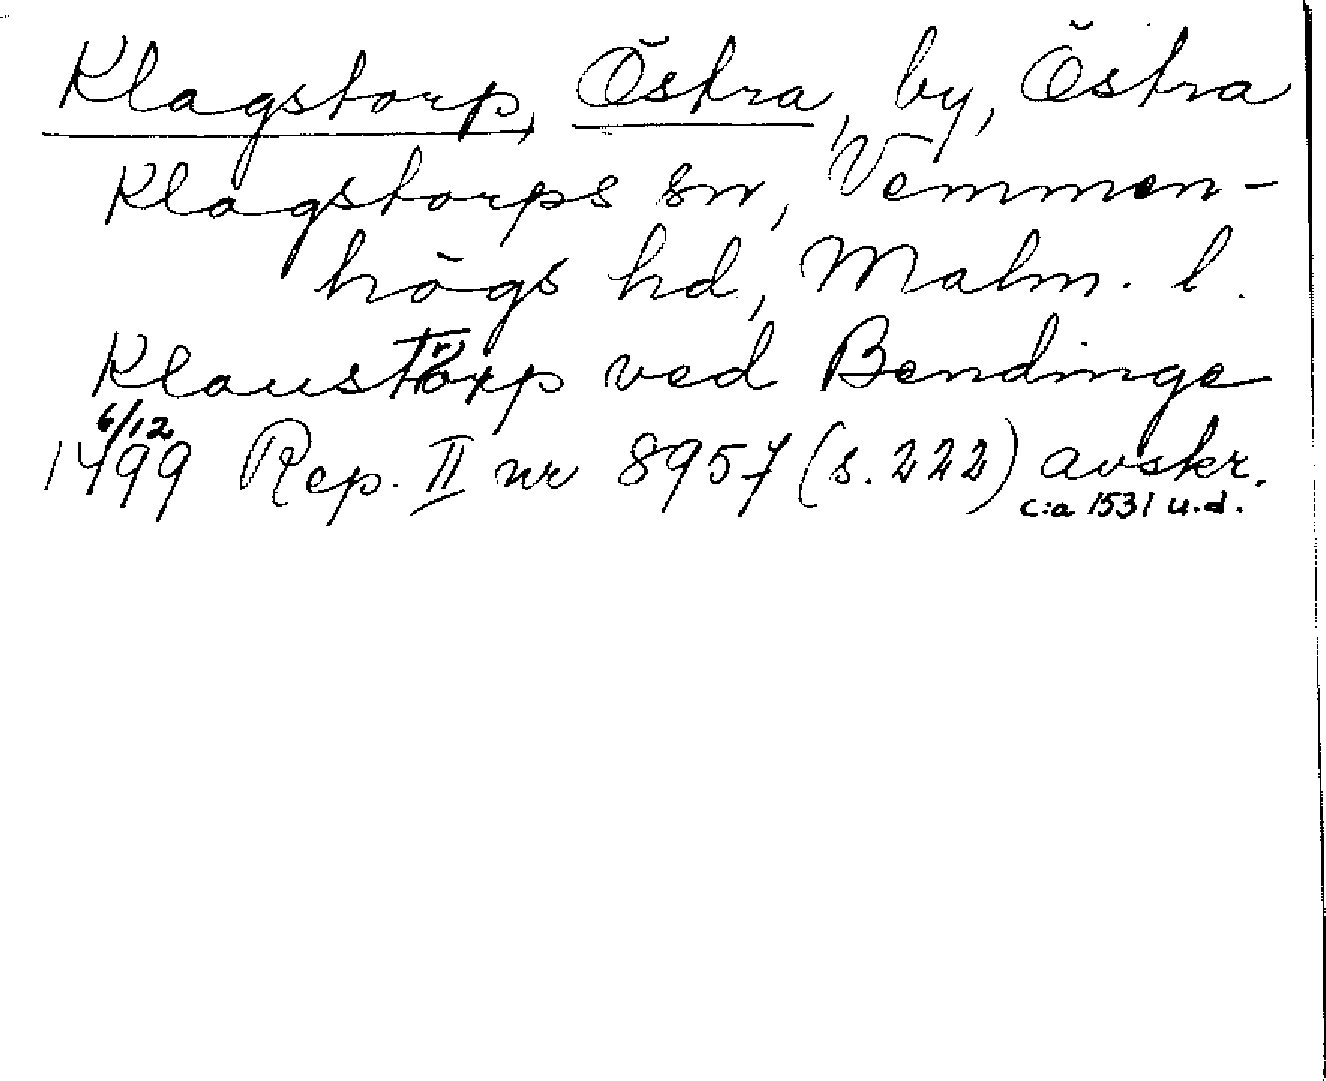 Klagstorp, Östra, by, Östra
Klagstorps sn, Vemmen-
högs hd, Malm. l.
ved Bendinge
6/12
1499 Rep. II nr 8957 (s. 222) avskr.
c:a 1531 u.d.